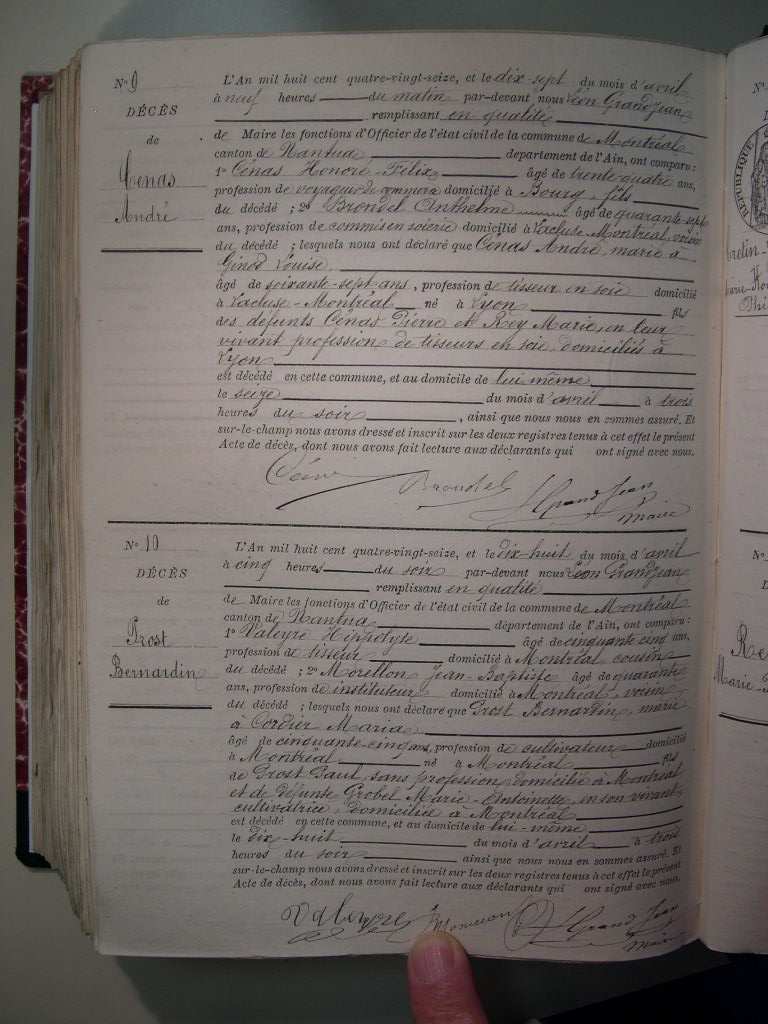 N° 9
DÉCÈS
de
Cénas
André
L'An mil huit cent quatre-vingt-seize, et le dix-sept du mois d'avril
à neuf heures du matin par-devant nous Léon Grandjean
remplissant en qualité
de Maire les fonctions d'Officier de l'état civil de la commune de Montréal
canton de Nantua département de l'Ain, ont comparu :
1° Cénas Honoré Félix âgé de trente quatre ans,
profession de voyageur de commerce domicilié à Bourg, fils
du décédé ; 2° Brondel Anthelme âgé de quarante-sept
ans, profession de commis en soierie domicilié à Lacluse Montréal, voisin
du décédé ; lesquels nous ont déclaré que Cénas André, marié à
Ginod Louise
âgé de soixante-sept ans, profession de tisseur en soie domicilié
à Lacluse-Montréal né à Lyon fils
des défunts Cénas Pierre et Rey Marie, en leur
vivant profession de tisseurs en soie domiciliés à
Lyon
est décédé en cette commune, et au domicile de lui même
le seize du mois d'avril à trois
heures du soir, ainsi que nous nous en sommes assuré. Et
sur-le-champ nous avons dressé et inscrit sur les deux registres tenus à cet effet le présent
Acte de décès, dont nous avons fait lecture aux déclarants qui ont signé avec nous.
Brondel Grand Jean
Maire
N° 10
DÉCÈS
de
Prost
Bernardin
L'An mil huit cent quatre-vingt-seize, et le dix-huit du mois d'avril
à cinq heures du soir par-devant nous Léon Grandjean
remplissant en qualité
de Maire les fonctions d'Officier de l'état civil de la commune de Montréal
canton de Nantua département de l'Ain, ont comparu :
1° Valeyre Hippolyte âgé de cinquante cinq ans,
profession de tisseur domicilié à Montréal cousin
du décédé ; 2° Morellon Jean-Baptiste âgé de quarante
ans, profession de instituteur domicilié à Montréal, voisin
du décédé ; lesquels nous ont déclaré que Prost Bernardin, marié
à Cordier Maria
âgé de cinquante-cinq ans, profession de cultivateur domicilié
à Montréal né à Montréal fils
de Prost Paul, sans profession, domicilié à Montréal
et de défunte Grobel Marie-Antoinette, en son vivant
cultivatrice, domiciliée à Montréal
est décédé en cette commune, et au domicile de lui-même
le dix-huit du mois d'avril à trois
heures du soir ainsi que nous nous en sommes assuré. Et
sur-le-champ nous avons dressé et inscrit sur les deux registres tenus à cet effet le présent
Acte de décès, dont nous avons fait lecture aux déclarants qui ont signé avec nous.
Valeyre Morellon Grand Jean
Maire